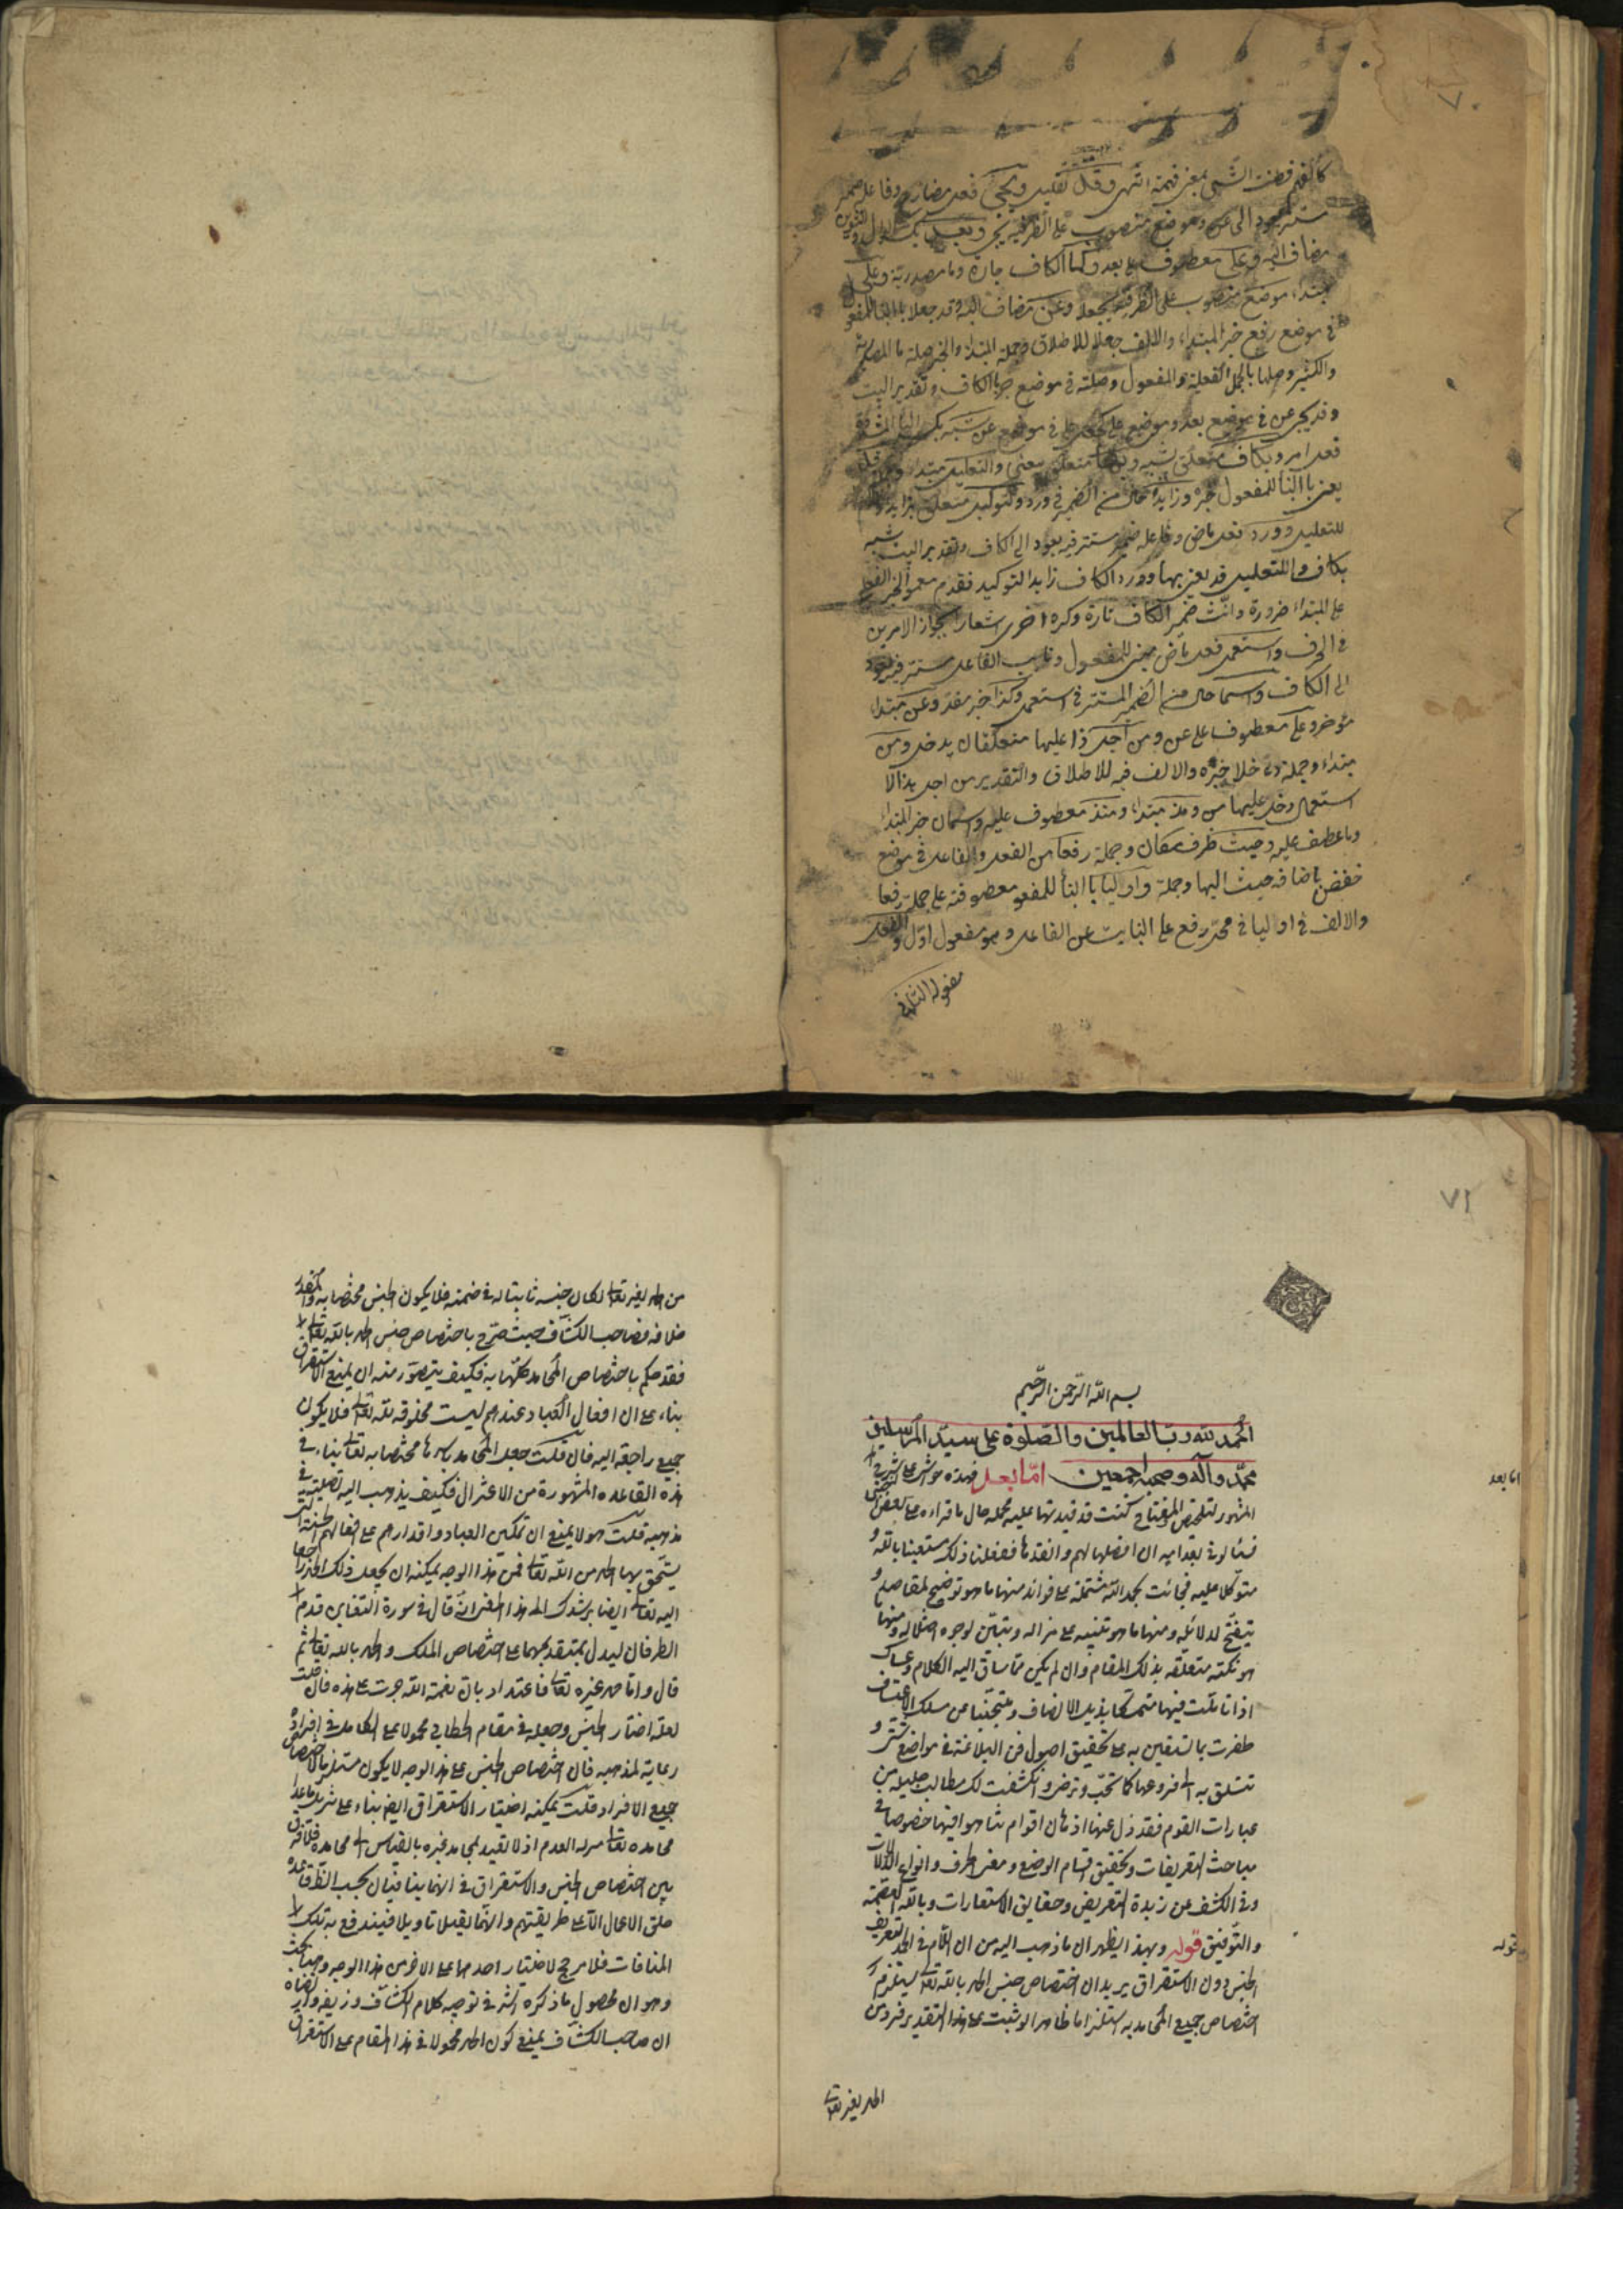 ٧٠
كالفهم فطنت الشئ بمعنى فهمته انتهى وقل تقليل ويجئ فعل مضارع وفاعله ضمير
مستتر يعود الى عن وموضع منصوب على الظرفية يجئ وبعد
مضاف اليه وعلى معطوف على بعد وكما الكاف جارة وما مصدرية وعلى
مبتداء موضع منصوب على الظرفية بجعلا وعن مضاف اليه وقد جعلا بالبناء للمفعول
في موضع رفع خبر المبتداء والالف في جعلا للاطلاق وجملة المبتداء والخبر صلة ما المصدرية
والكثير وصلها بالجمل الفعلية والمفعول وصلته في موضع جر بالكاف وتقدير البيت
وقد يجئ عن في موضع بعد وموضع على كجعل على في موضع عن شبه بكسر الباء المشددة
فعل امر وبكاف متعلق بشبه وبها متعلق بيعنى والتعليل مبتداء وقد
يعنى بالبناء للمفعول خبره وزايدا حال من الضمير في ورد ولتوكيد متعلق بزايدا
للتعليل وورد فعل ماض وفاعله ضمير مستتر فيه يعود الى الكاف وتقدير البيت شبه
بكاف والتعليل قد يعنى بها وورد الكاف زايدا لتوكيد فقدم معمول الخبر الفعلى
على المبتداء ضرورة وانث ضمير الكاف تارة وذكره اخرى اشعارا بجواز الامرين
في الحرف واستعمل فعل ماض مبنى للمفعول ونايب الفاعل مستتر فيه يعود
الى الكاف واسما حال من الضمير المستتر في استعمل وكذا خبر مقدم وعن مبتداء
مؤخر وعلى معطوف على عن ومن اجل ذا عليهما متعلقان بدخل ومن
مبتداء وجملة دخلا خبره والالف فيه للاطلاق والتقدير من اجل هذا الا
استعمال دخل عليهما من ومذ مبتداء ومنذ معطوف عليه واسمان خبر المبتداء
وما عطف عليه وحيث ظرف مكان وجملة رفعا من الفعل والفاعل في موضع
خفض باضافة حيث اليها وجملة واوليا بالبناء للمفعول معطوفة على جملة رفعا
والالف في اوليا في محل رفع على النيابة عن الفاعل وهو مفعول اول والفعل
مفعوله الثاني
٧١
بسم الله الرحمن الرحيم
الحمد لله رب العالمين والصلوة على سيد المرسلين
محمد وآله وصحبه اجمعين امّا بعد فهذه حواش على الشرح
اما بعد
المشهور لتلخيص المفتاح كنت قد قيدتها عليه مجملة حال ما قراءه على بعض
فسألوني بعد اميه ان افصلها لهم وانقدها ففعلنا ذلك مستعينا بالله و
متوكلا عليه فجائت بحمد الله مشتملة على فوائد منها ما هو توضيح لمقاصده و
تنقيح لدلائله ومنها ما هو تنبيه على مزاله وتبيين لوجوه اختلاله ومنها
هو نكتة متعلقة بذلك المقام وان لم يكن مما ساق اليه الكلام وعساك
اذا تأملت فيها متمسكا بذيل الانصاف ومتجنبا عن مسلك الاعتساف
ظفرت بما تستعين به على تحقيق اصول فن البلاغة في مواضع شتى و
تتسلق به الى فروعها كما تحب وترضى وانكشفت لك مطالب جليلة من
عبارات القوم فقد زل عنها اذهان اقوام شاهوا فيها خصوصا في
مباحث التعريفات وتحقيق اقسام الوضع ومعنى الحرف وانواع الدلالات
وفي الكشف عن زبدة التعريض وحقايق الاستعارات وبالله العصمة
والتوفيق قوله وبهذا يظهر ان ما ذهب اليه من ان اللام في الحمد لتعريف
قوله
الجنس دون الاستغراق يريد ان اختصاص جنس الحمد بالله تعالى يستلزم
اختصاص جميع المحامد به استلزاما ظاهرا لو ثبت على هذا التقدير فرد من
الحمد لغيره تعالى
من الحمد لغيره تعالى لكان جنسه ثابتا له في ضمنه فلا يكون الجنس مختصا به والمقدر
خلافه فصاحب الكشاف حيث صرح باختصاص جنس الحمد بالله تعالى
فقد حكم باختصاص المحامد كلها به فكيف يتصور منه ان يمنع الاستغراق
بناء على ان افعال العباد عندهم ليست مخلوقة لله تعالى فلا يكون
جميع راجعة اليه فان قلت جعل المحامد باسرها مختصا به تعالى بناء في
هذه القاعدة المشهورة من الاعتزال فكيف يذهب اليه تصلبه في
مذهبه قلت هو لا يمنع ان تمكين العباد واقدارهم على افعالهم الحسنة التي
يستحق بها الحمد من الله تعالى فمن هذا الوجه يمكنه ان يجعل ذلك الحمد راجعا
اليه تعالى ايضا يرشدك الى هذا المعنى انه قال في سورة التغابن قدم
الظرفان ليدل بتقديمهما على اختصاص الملك والحمد بالله تعالى ثم
قال واما حمد غيره تعالى فاعتداد بان نعمة الله جرت على يده فان قلت
لعله اختار الجنس وجعله في مقام الخطابي محمولا على الكامل في افراده
رعاية لمذهبه فان اختصاص الجنس على هذا الوجه لا يكون مستلزما لاختصاص
جميع الافراد قلت يمكنه اختيار الاستغراق ايضا بناء على تنزيل ماعدا
محامده تعالى منزلة العدم اذ لا يعتد بمحامد غيره بالقياس الى محامده فلا فرق
بين اختصاص الجنس والاستغراق في انهما ينافيان بحسب الظ قاعدة
خلق الاعمال الا على طريقتهم وانهما يقبلان تاويلا فيندفع به تلك
المنافات فلا مرجح لاختيار احدهما على الآخر من هذا الوجه وههنا بحث
وهو ان محصول ما ذكره الشرح في توجيه كلام الكشاف وزيفه واير تضاه
ان صاحب الكشاف يمنع كون الحمد محمولا في هذا المقام على الاستغراق